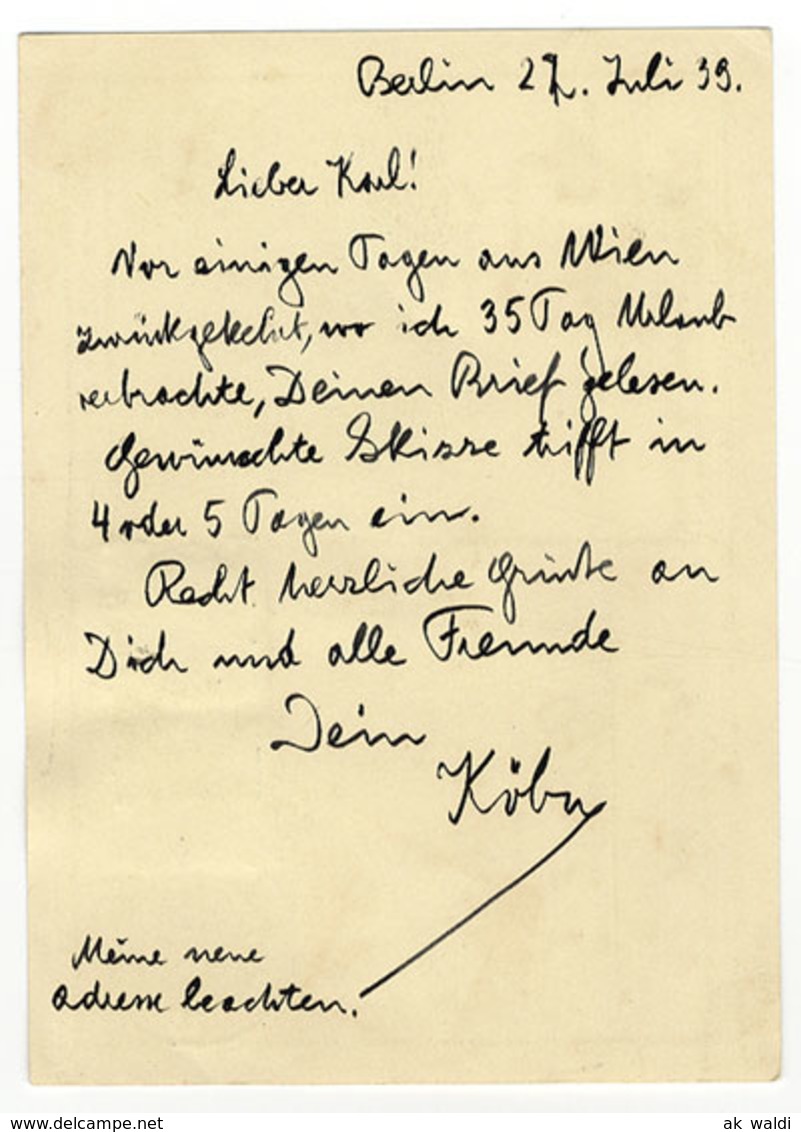 Berlin 27. Juli 39.
Lieber Karl!
Vor einigen Tagen aus Wien
zurückgekehrt, wo ich 35 Tag Urlaub
verbrachte, Deinen Brief gelesen.
Gewünschte Skizze trifft in
4 oder 5 Tagen ein.
Recht herzliche Grüße an
Dich und alle Freunde
Dein
Meine neue
Adresse beachten.
www.delcampe.net
ak_waldi